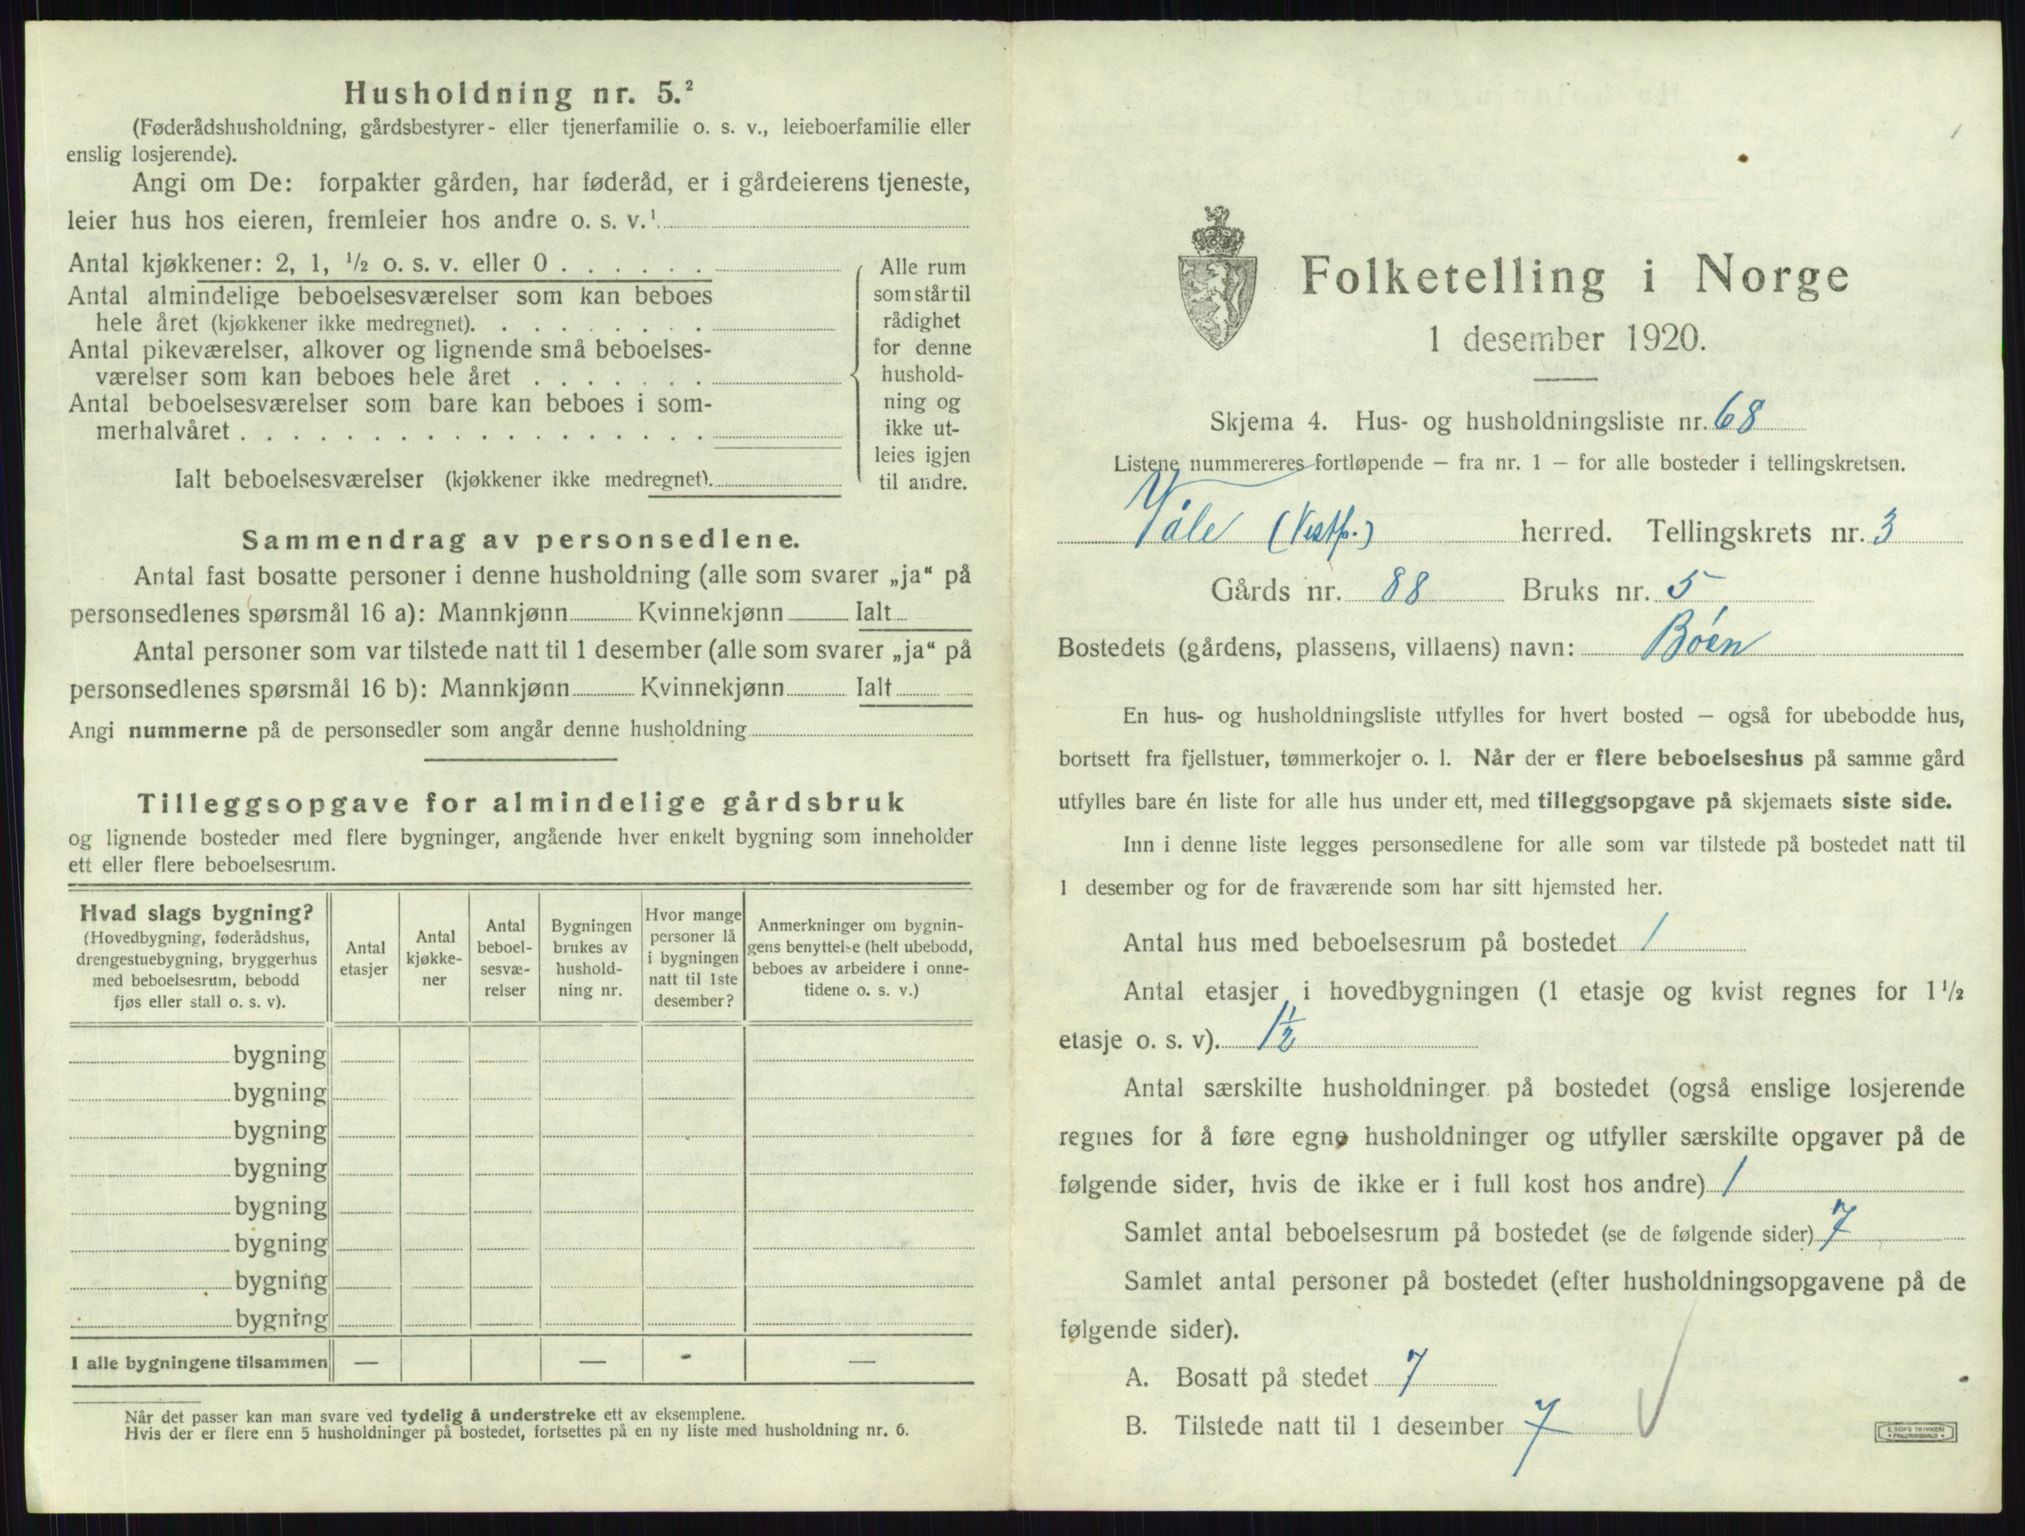 Husholdning nr. 5.²
(Føderådshusholdning, gårdsbestyrer- eller tjenerfamilie o. s. v., leieboerfamilie eller
enslig losjerende).
Angi om De: forpakter gården, har føderåd, er i gårdeierens tjeneste,
leier hus hos eieren, fremleier hos andre o. s. v.¹
Antal kjøkkener: 2, 1, ½ o. s. v. eller 0 . . . . . .
Antal almindelige beboelsesværelser som kan beboes
hele året (kjøkkener ikke medregnet). . . . . . . . .
Antal pikeværelser, alkover og lignende små beboelses-
værelser som kan beboes hele året . . . . . . .
Antal beboelsesværelser som bare kan beboes i som-
merhalvåret . . . . . . . . . . . . . . . . . .
Ialt beboelsesværelser (kjøkkener ikke medregnet).
Alle rum
som står til
rådighet
for denne
hushold-
ning og
ikke ut-
leies igjen
til andre.
Sammendrag av personsedlene.
Antal fast bosatte personer i denne husholdning (alle som svarer „ja“ på
personsedlenes spørsmål 16 a): Mannkjønn Kvinnekjønn Ialt
Antal personer som var tilstede natt til 1 desember (alle som svarer „ja“ på
personsedlenes spørsmål 16 b): Mannkjønn Kvinnekjønn Ialt
Angi nummerne på de personsedler som angår denne husholdning
Tilleggsopgave for almindelige gårdsbruk
og lignende bosteder med flere bygninger, angående hver enkelt bygning som inneholder
ett eller flere beboelsesrum.
Hvad slags bygning?
(Hovedbygning, føderådshus,
drengestuebygning, bryggerhus
med beboelsesrum, bebodd
fjøs eller stall o. s. v).
Antal
etasjer
Antal
kjøkke-
ner
Antal
beboel-
sesvæ-
relser
Bygningen
brukes av
hushold-
ning nr.
Hvor mange
personer lå
i bygningen
natt til 1ste
desember?
Anmerkninger om bygnin-
gens benyttelse (helt ubebodd,
beboes av arbeidere i onne-
tidene o. s. v.)
bygning
bygning
bygning
bygning
bygning
bygning
bygning
bygning
I alle bygningene tilsammen — — - —
Når det passer kan man svare ved tydelig å understreke ett av eksemplene.
Hvis der er flere enn 5 husholdninger på bostedet, fortsettes på en ny liste med husholdning nr. 6.
Folketelling i Norge
1 desember 1920.
Skjema 4. Hus- og husholdningsliste nr. 68
Listene nummereres fortløpende — fra nr. 1 — for alle bosteder i tellingskretsen.
Våle (Vestf.) herred. Tellingskrets nr. 3
Gårds nr. 88 Bruks nr. 5
Bostedets (gårdens, plassens, villaens) navn: Bóen
En hus- og husholdningsliste utfylles for hvert bosted — også for ubebodde hus,
bortsett fra fjellstuer, tømmerkojer o. l. Når der er flere beboelseshus på samme gård
utfylles bare én liste for alle hus under ett, med tilleggsopgave på skjemaets siste side.
Inn i denne liste legges personsedlene for alle som var tilstede på bostedet natt til
1 desember og for de fraværende som har sitt hjemsted her.
Antal hus med beboelsesrum på bostedet 1
Antal etasjer i hovedbygningen (1 etasje og kvist regnes for 1½
etasje o. s. v). 1½
Antal særskilte husholdninger på bostedet (også enslige losjerende
regnes for å føre egne husholdninger og utfyller særskilte opgaver på de
følgende sider, hvis de ikke er i full kost hos andre) 1
Samlet antal beboelsesrum på bostedet (se de følgende sider) 7
Samlet antal personer på bostedet (efter husholdningsopgavene på de
følgende sider).
A. Bosatt på stedet 7
B. Tilstede natt til 1 desember 7